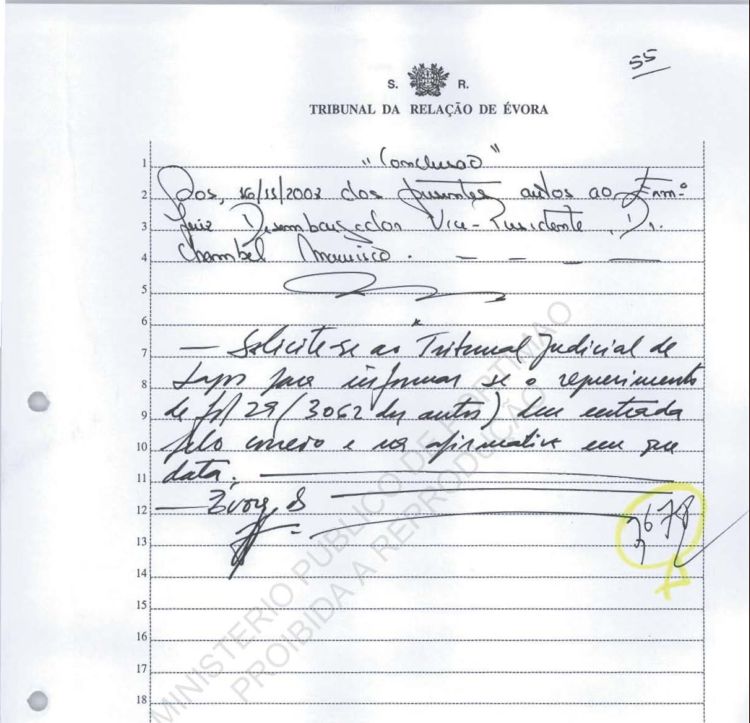 55
S. R.
TRIBUNAL DA RELAÇÃO DE ÉVORA
1 "Conclusão"
2 Dos, 16/11/2007 dos presentes autos ao Exmº
3 Juiz Desembargador Vice-Presidente, Dr.
4 Chambel Mourisco.
5
6
7 — Solicite-se ao Tribunal Judicial de
8 Lagos para informar se o requerimento
9 de fls 29 (3062 dos autos) deu entrada
10 pelo correio e na afirmativa em que
11 data.
12 — Évora, d.s.
3678
13
14
15
16
17
18
MINISTERIO PUBLICO DE PORTIMAO
PROIBIDA A REPRODUÇÃO